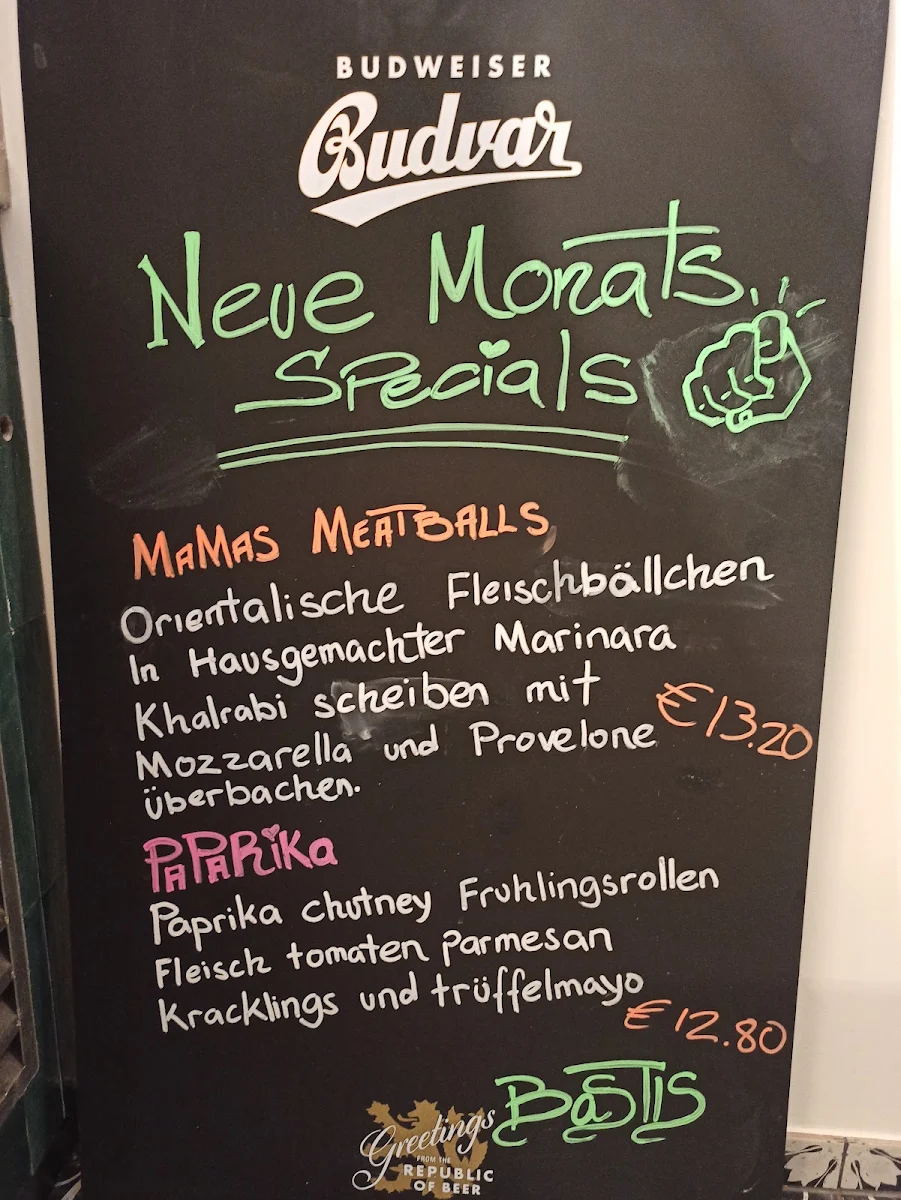 BUDWEISER
Budvar
Neue Monats
Specials
MaMAS MEATBALLS
Orientalische Fleischbällchen
In Hausgemachter Marinara
Khalrabi scheiben mit
Mozzarella und Provelone
€ 13.20
überbachen.
PAPARiKa
Paprika chutney Fruhlingsrollen
Fleisch tomaten parmesan
Kracklings und trüffelmayo
€ 12.80
BaSTIS
Greetings
FROM THE
REPUBLIC
OF BEER